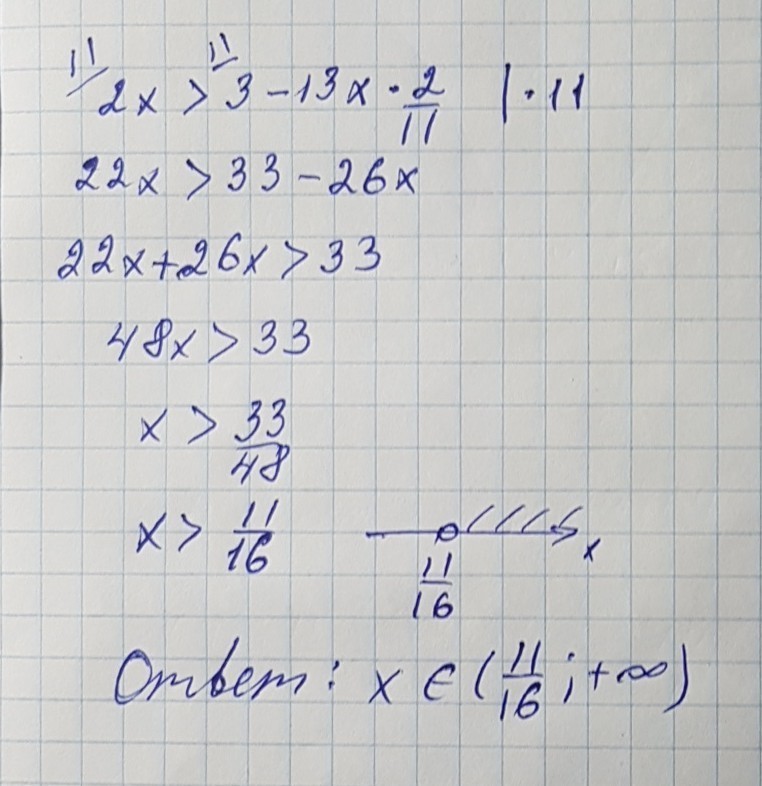 11/ 2x > 11/ 3 - 13x · 2/11 | · 11
22x > 33 - 26x
22x + 26x > 33
48x > 33
x > 33/48
x > 11/16
11/16 x
Ответ: x ∈ (11/16 ; +∞)